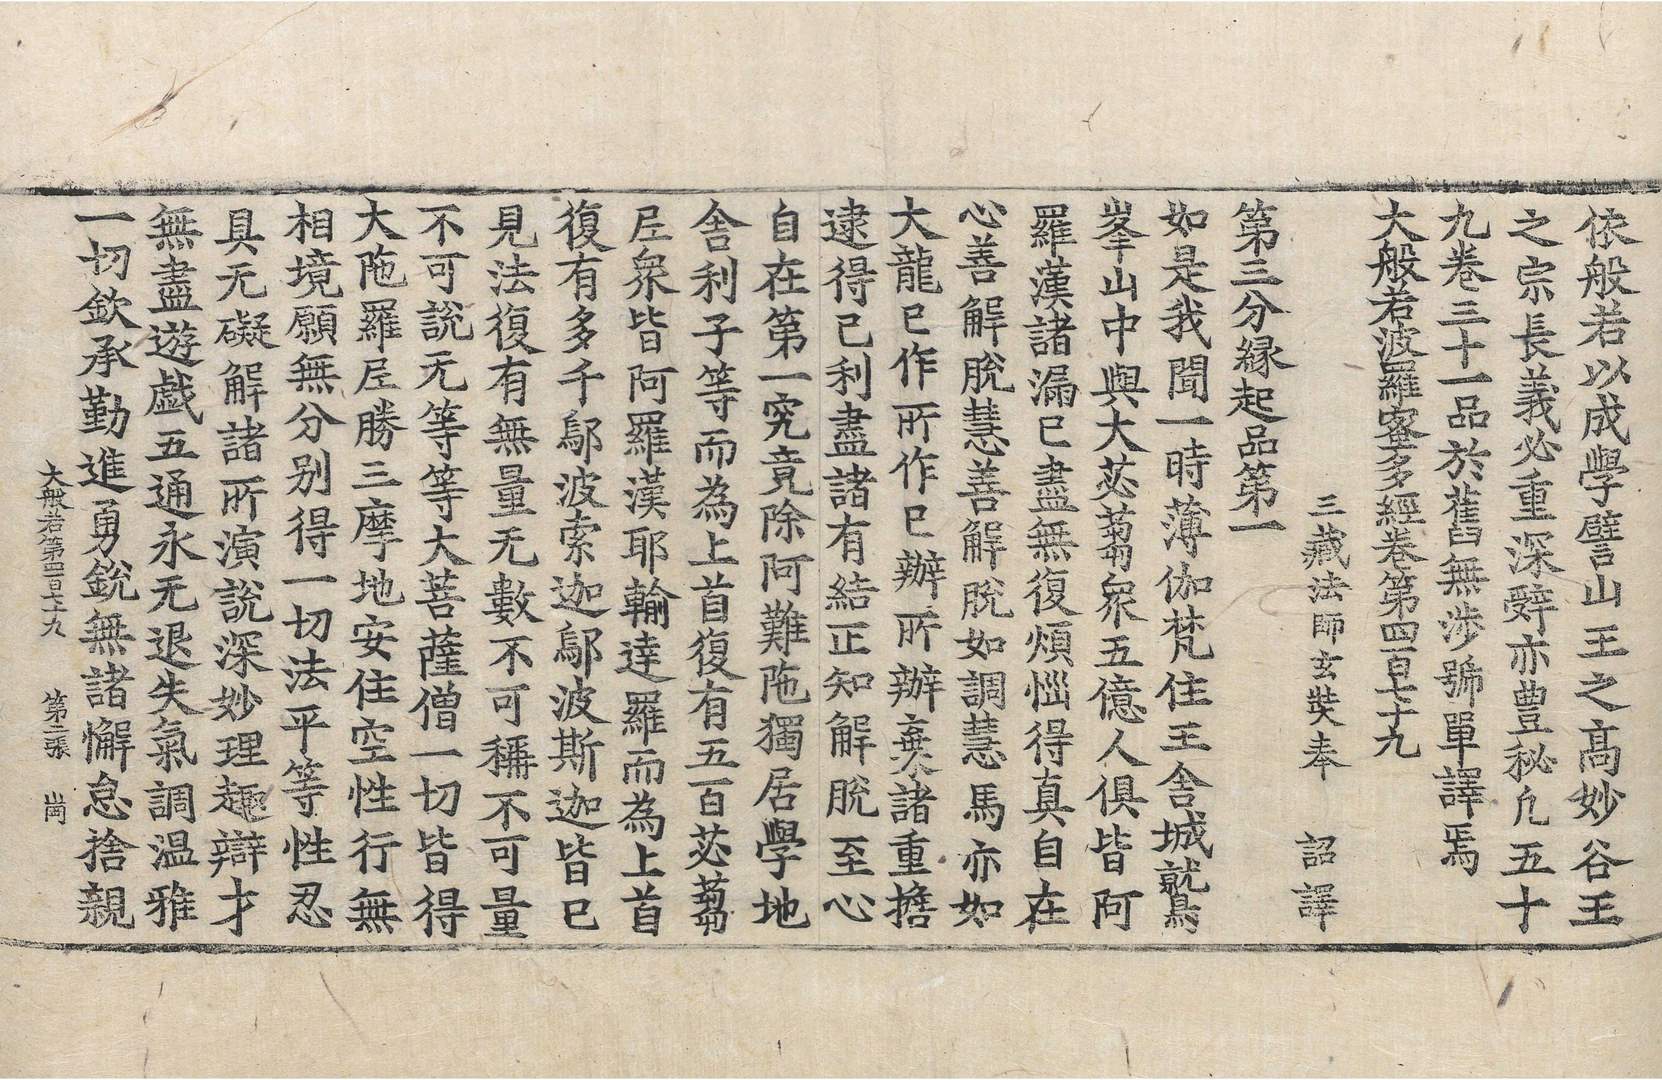 依般若以成學譬山王之髙妙谷王
之宗長義必重深辤亦豊秘凢五十
九卷三十一品於舊無涉號單譯焉
大般若波羅蜜多經卷第四百七十九
三藏法師玄奘奉 詔譯
第三分縁起品第一
如是我聞一時薄伽梵住王舍城鷲
峯山中與大苾蒭衆五億人俱皆阿
羅漢諸漏已盡無復煩惱得真自在
心善解脫慧善解脫如調慧馬亦如
大龍已作所作已辦所辦棄諸重擔
逮得己利盡諸有結正知解脫至心
自在第一究竟除阿難陁獨居學地
舍利子等而為上首復有五百苾蒭
尼衆皆阿羅漢耶輸達羅而為上首
復有多千鄔波索迦鄔波斯迦皆已
見法復有無量无數不可稱不可量
不可說无等等大菩薩僧一切皆得
大陁羅尼勝三摩地安住空性行無
相境願無分别得一切法平等性忍
具无礙解諸所演說深妙理趣辯才
無盡遊戲五通永无退失氣調温雅
一切欽承勤進勇銳無諸懈怠捨親
大般若第四百七十九 第二張 崗